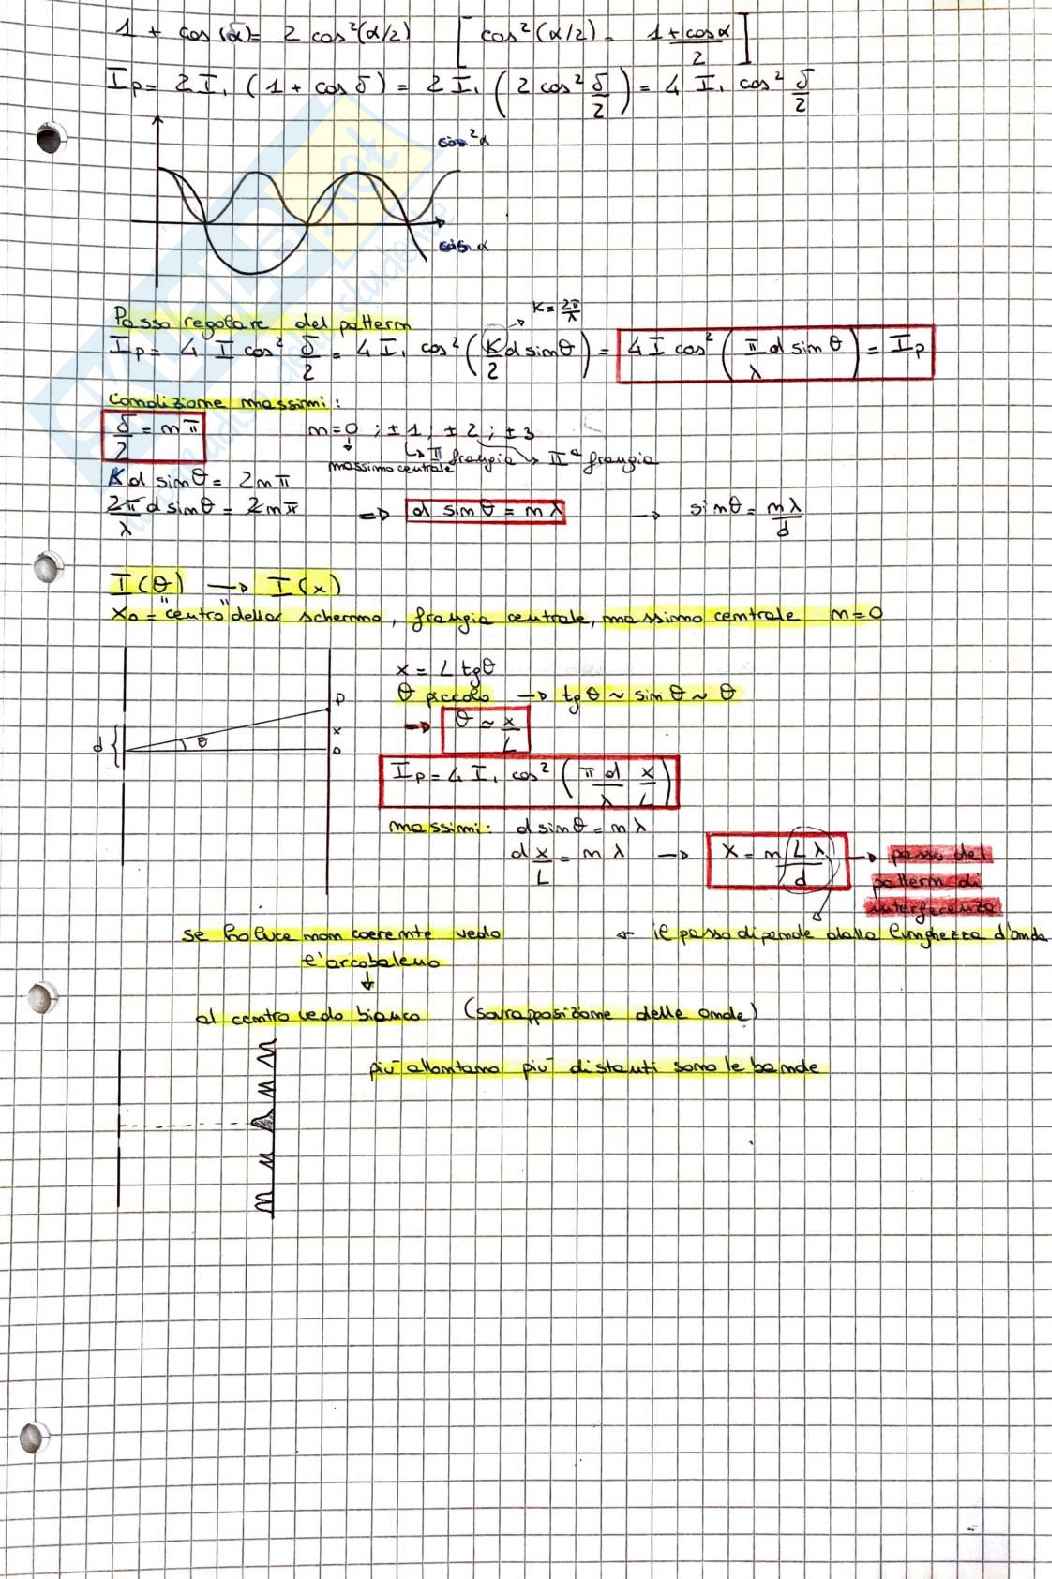 1 + cos(α) = 2 cos²(α/2) [cos²(α/2) = 1+cosα / 2]
Ip = 2I₁ (1 + cos δ) = 2I₁ (2 cos² δ/2) = 4 I₁ cos² δ/2
cos²α
cos α
Passo regolare del pattern
K = 2π/λ
Ip = 4 I cos² δ/2 = 4I₁ cos² (K/2 d sinθ) = 4 I cos² (π/λ d sin θ) = Ip
Condizione massimi:
δ/2 = mπ m=0 ; ±1 ; ±2 ; ±3
massimo centrale I frangia IIª frangia
Kd sinθ = 2mπ
2π/λ d sinθ = 2mπ => d sin θ = mλ → sinθ = mλ/d
I(θ) → I(x)
x₀ = "centro" dello schermo, frangia centrale, massimo centrale m=0
x = L tgθ
P
θ piccolo → tgθ ~ sinθ ~ θ
d { θ x 0
=> θ ~ x/L
Ip = 4 I₁ cos² (πd/λ x/L)
massimi: d sinθ = mλ
d x/L = mλ → X = m Lλ/d → passo del
pattern di
interferenza
se ho luce non coerente vedo
l'arcobaleno
← il passo dipende dalla lunghezza d'onda
↓
al centro vedo bianco (sovrapposizione delle onde)
più allontano più distanti sono le bande